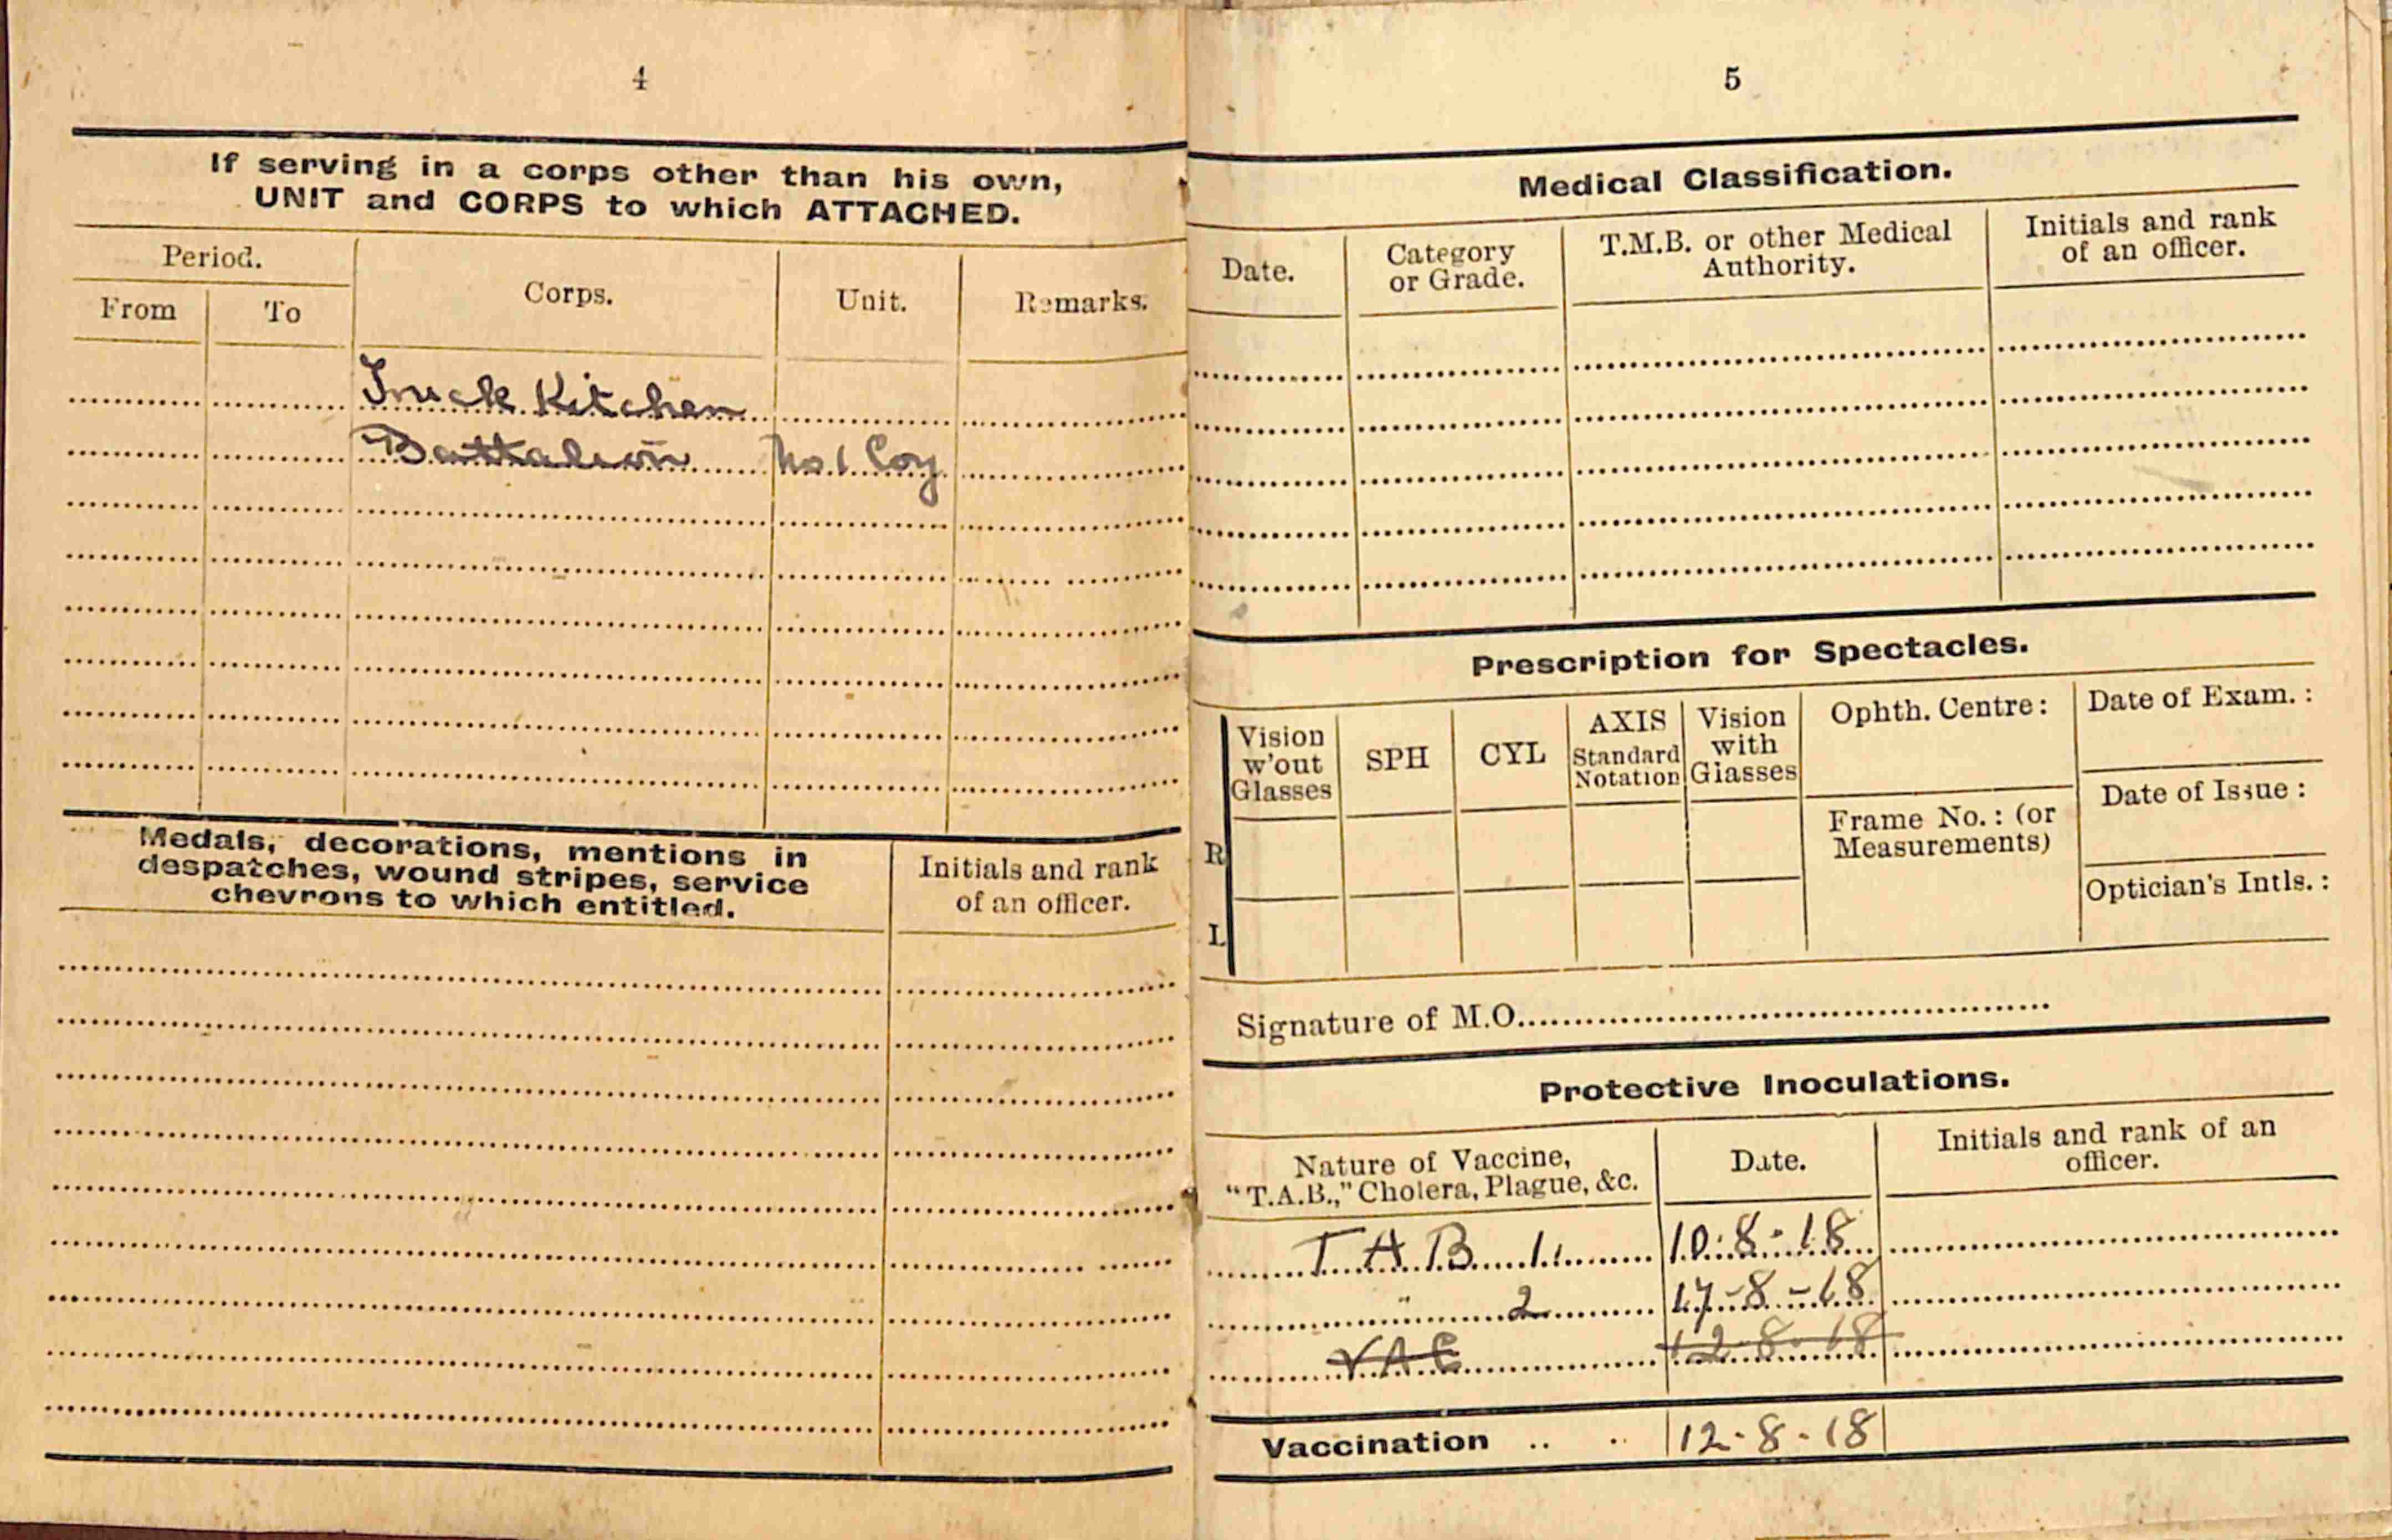 4
If serving in a corps other than his own,
UNIT and CORPS to which ATTACHED.
Period.
From
To
Corps.
Unit.
Remarks.
Kitchen
Battalion No 1 Coy
Medals, decorations, mentions in
despatches, wound stripes, service
chevrons to which entitled.
Initials and rank
of an officer.
5
Medical Classification.
Date.
Category
or Grade.
T.M.B. or other Medical
Authority.
Initials and rank
of an officer.
Prescription for Spectacles.
Vision
w'out
Glasses
SPH
CYL
AXIS
Standard
Notation
Vision
with
Glasses
Ophth. Centre:
Date of Exam. :
Frame No. : (or
Measurements)
Date of Issue :
Optician's Intls. :
R
L
Signature of M.O.
Protective Inoculations.
Nature of Vaccine,
"T.A.B.," Cholera, Plague, &c.
Date.
Initials and rank of an
officer.
T A B 1. 10.8.18
" 2 17-8-18
VAC 12-8-18
Vaccination .. .. 12-8-18